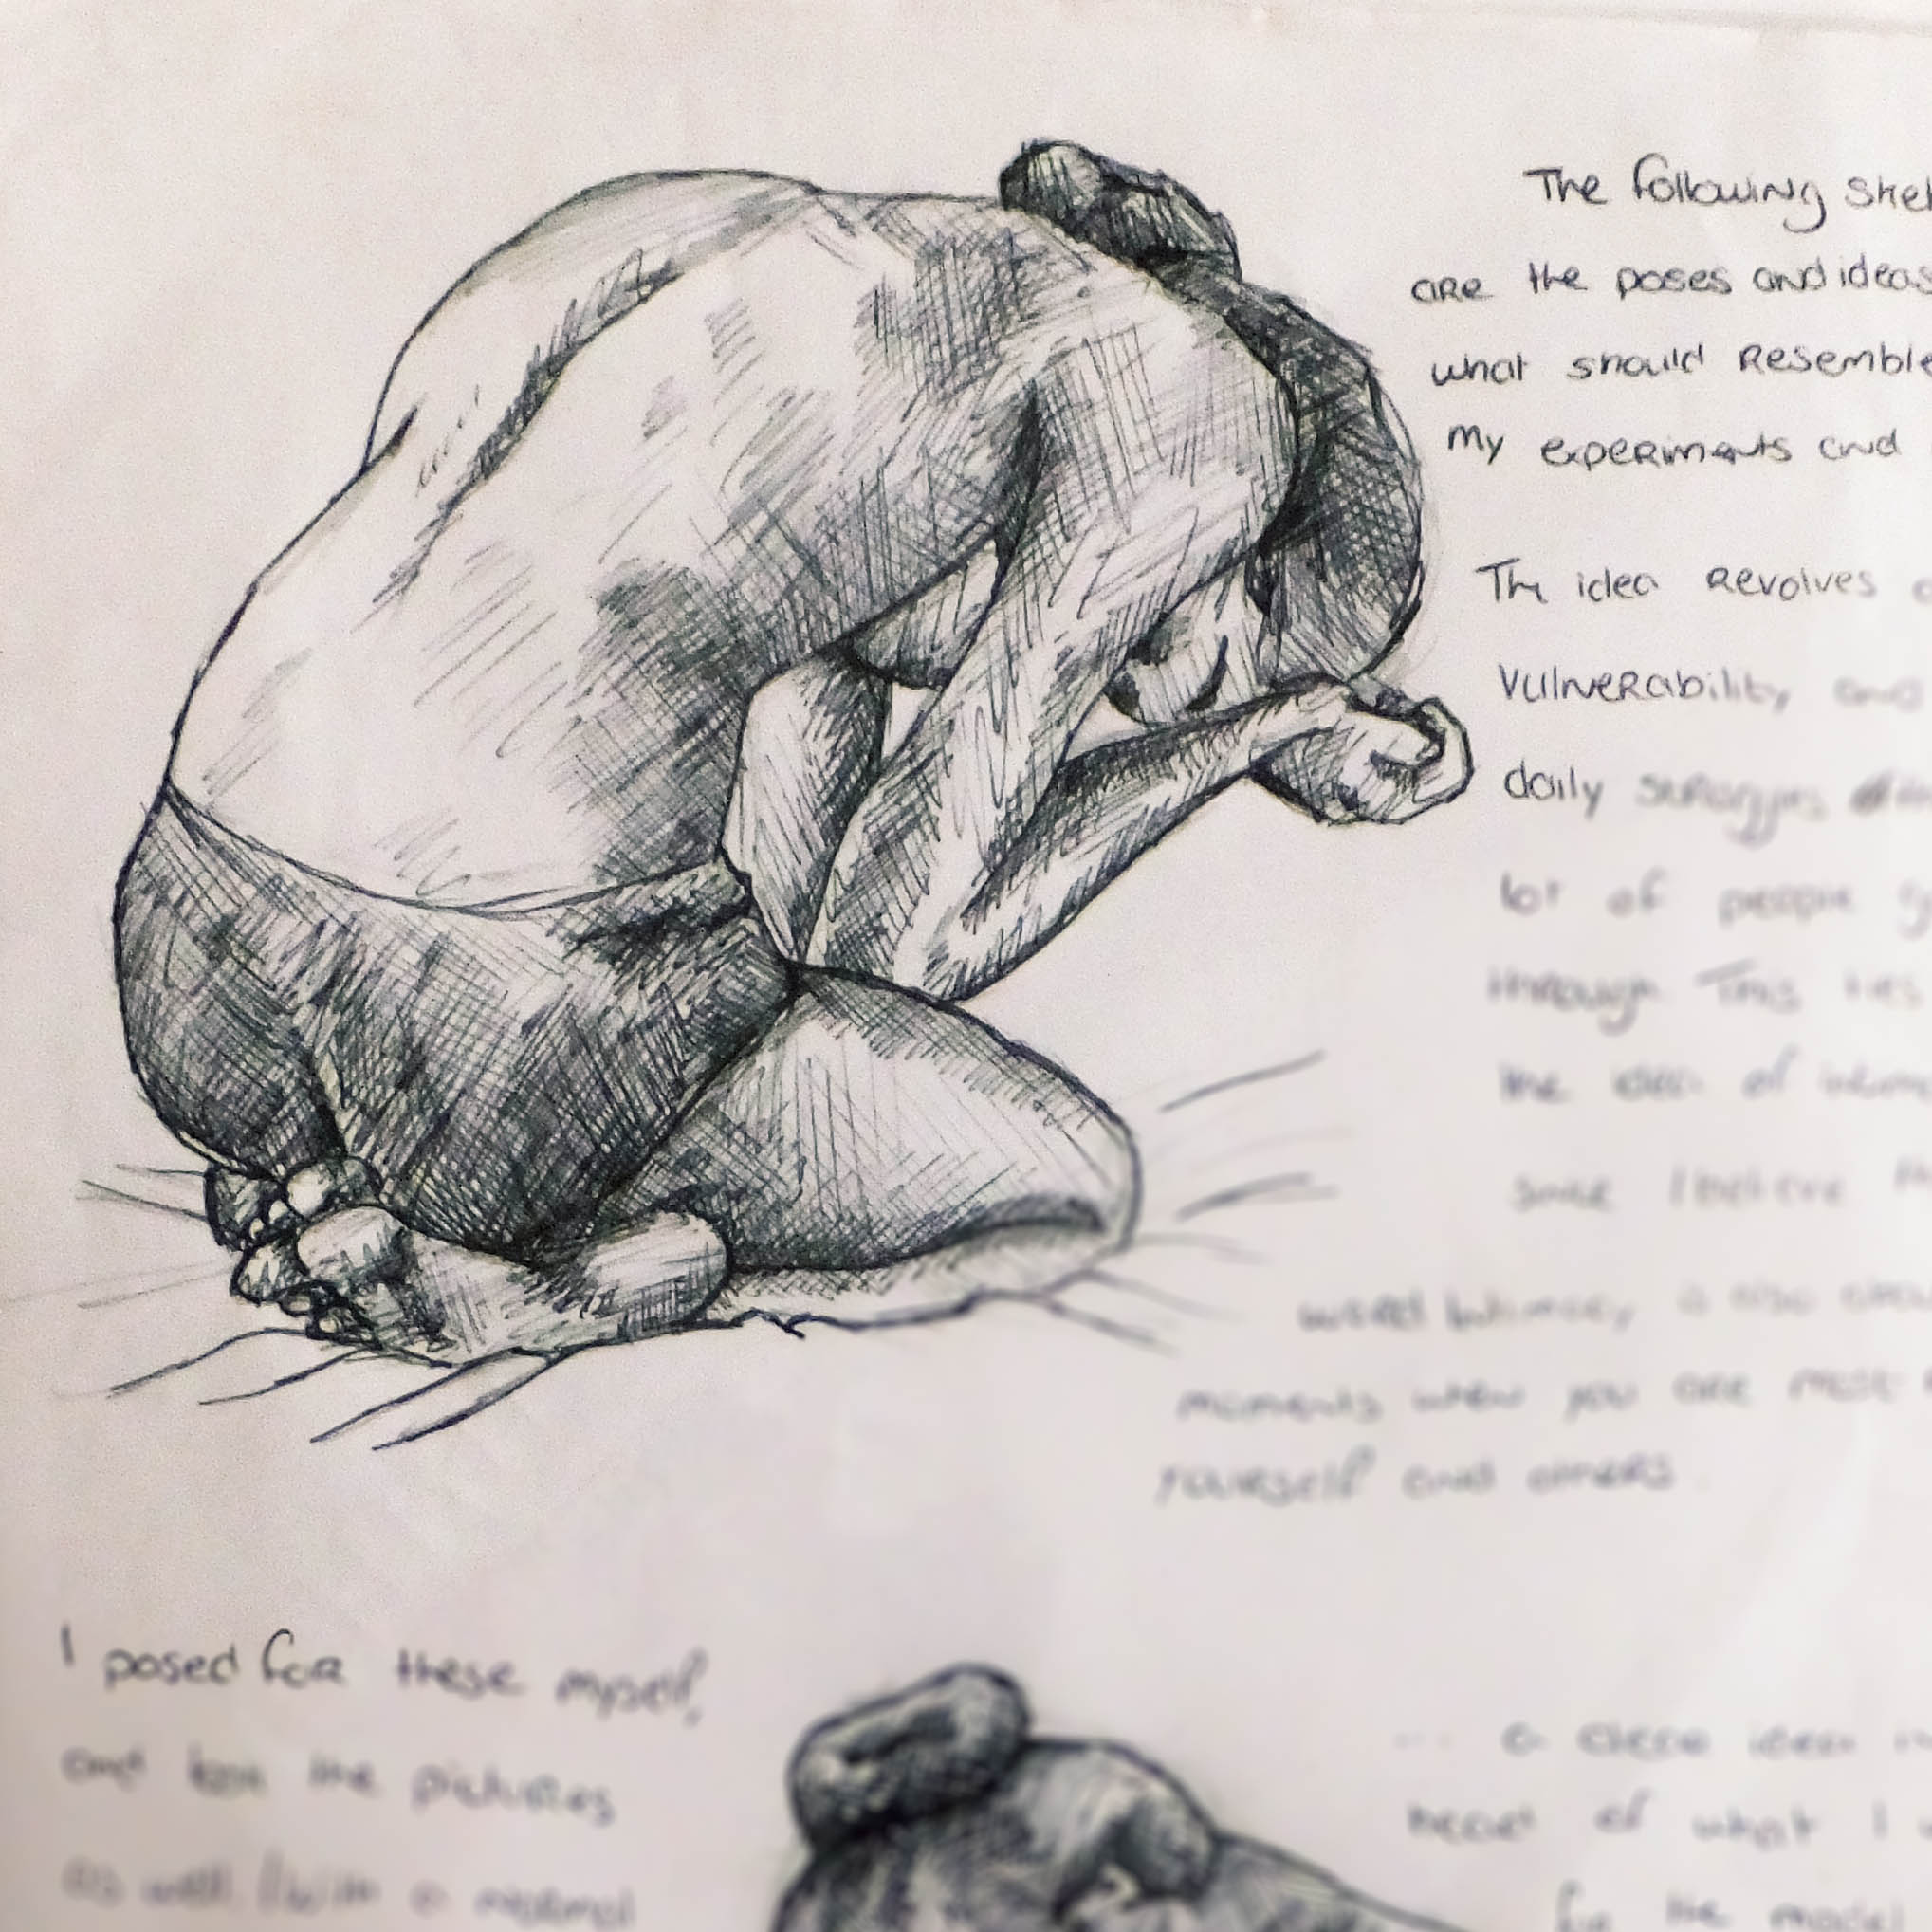 The following sket
are the poses and ideas
what should resemble
my experiments and
The idea revolves
vulnerability and
daily struggles
lot of people
through This ties
the idea of
since I believe
moments when you are most
yourself and others.
I posed for these myself,
and took the pictures
as well. with a
a clear idea in
head of what I
for the model